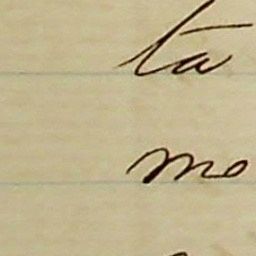 ta
mo